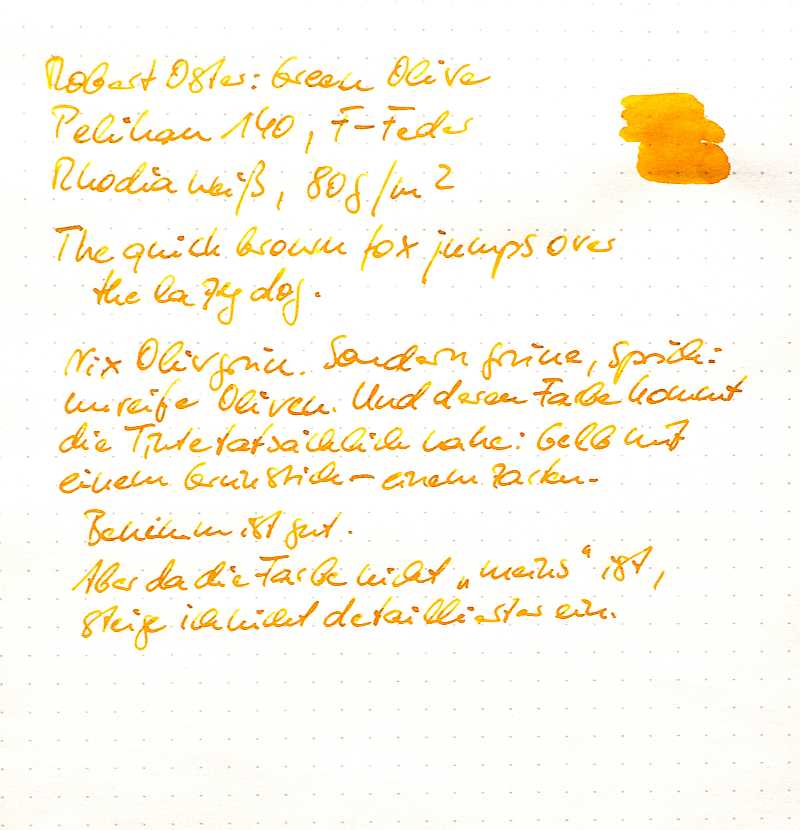 Robert Oster: Green Olive
Pelikan 140, F-Feder
Rhodia weiß, 80g/m²
The quick brown fox jumps over
the lazy dog.
Nix Olivgrün. Sondern grüne, sprich:
unreife Oliven. Und deren Farbe kommt
die Tinte tatsächlich nahe: Gelb mit
einem Grünstich - einem zarten.
Benehmen ist gut.
Aber da die Farbe nicht „meins“ ist,
steige ich nicht detaillierter ein.